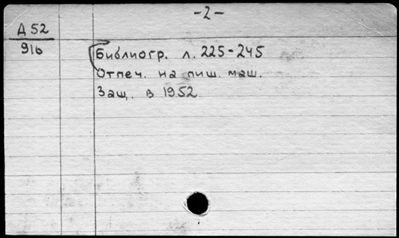 -2-
Д 52
916
Библиогр. л. 225-245
Отпеч. на пиш. маш.
Защ. в 1952